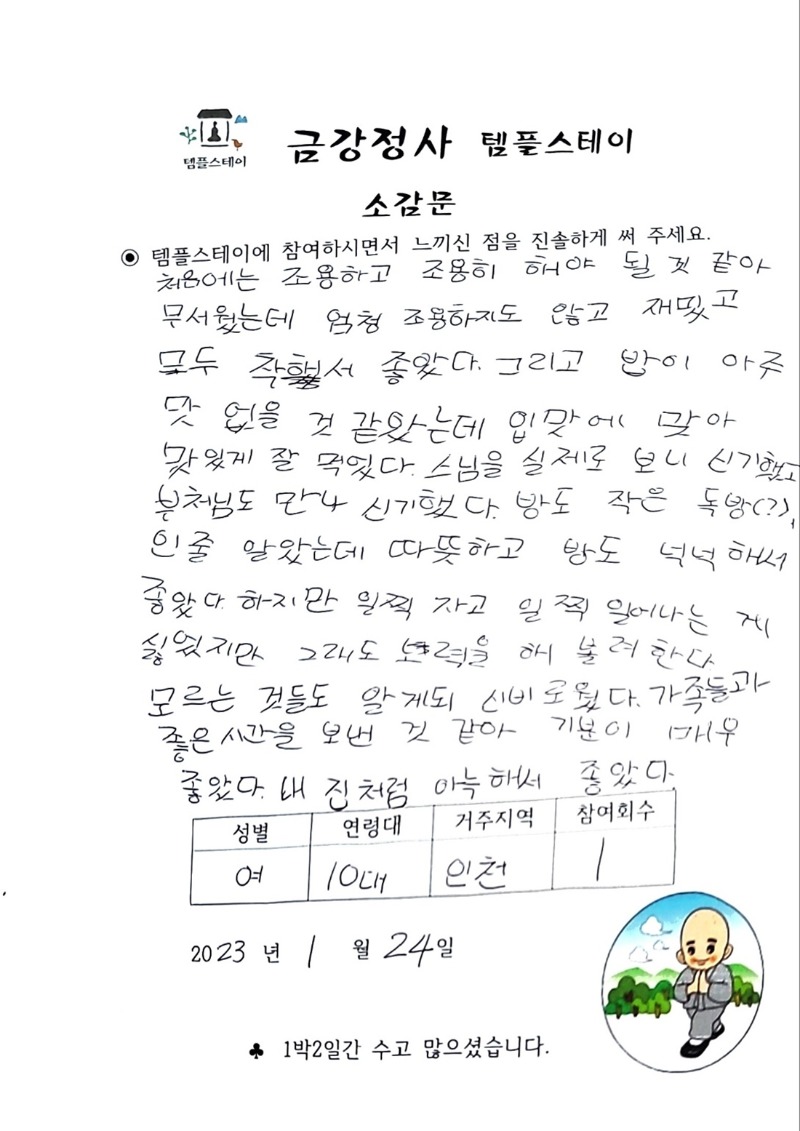 템플스테이
금강정사 템플스테이
소감문
◉ 템플스테이에 참여하시면서 느끼신 점을 진솔하게 써 주세요.
처음에는 조용하고 조용히 해야 될 것 같아
무서웠는데 엄청 조용하지도 않고 재밌고
모두 착해서 좋았다. 그리고 밥이 아주
맛 없을 것 같았는데 입맛에 맞아
맛있게 잘 먹었다. 스님을 실제로 보니 신기했고
부처님도 만나 신기했다. 방도 작은 독방(?)
인줄 알았는데 따뜻하고 방도 넉넉해서
좋았다. 하지만 일찍 자고 일찍 일어나는 게
싫었지만 그래도 노력을 해 볼려 한다
모르는 것들도 알게되 신비로웠다. 가족들과
좋은 시간을 보낸 것 같아 기분이 매우
좋았다. 내 집처럼 아늑해서 좋았다.
성별 연령대 거주지역 참여회수
여 10대 인천 1
2023 년 1 월 24일
♣ 1박2일간 수고 많으셨습니다.